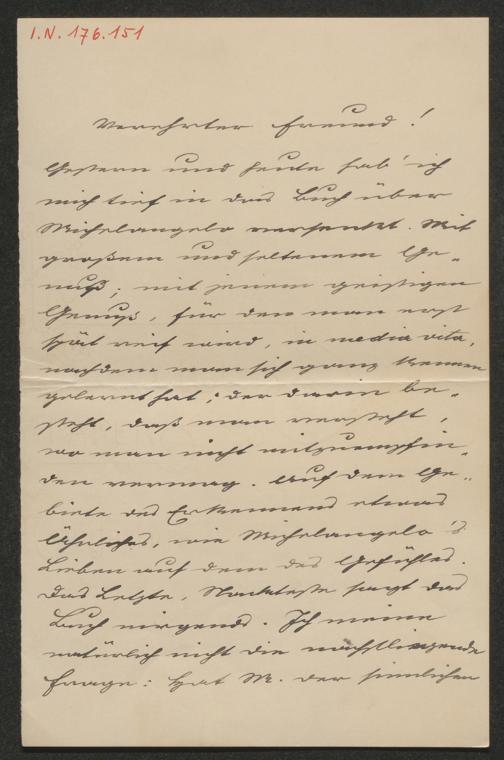 I.N. 176.151
Verehrter Freund!
Gestern und heute hab' ich
mich tief in das Buch über
Michelangelo versenkt. Mit
großem und seltenem Ge-
nuß; mit jenem geistigen
Genuß, für den man erst
spät reif wird, in media vita,
nachdem man sich ganz kennen
gelernt hat; der darin be-
steht, daß man versteht,
wo man nicht mitzuempfin-
den vermag. Auf dem Ge-
biete des Erkennens etwas
Ähnliches, wie Michelangelo's
Lieben auf dem des Gefühles.
Das Letzte, Nackteste sagt das
Buch nirgends. Ich meine
natürlich nicht die nächstliegende
Frage: Hat M. der sinnlichen